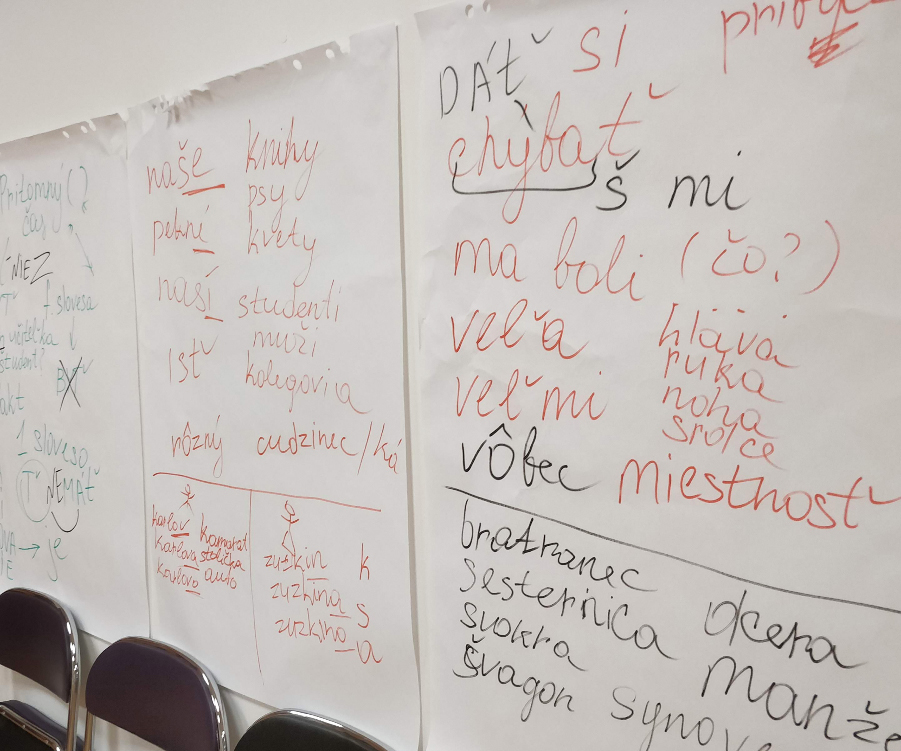 Prítomný (?
čas
NIEZ
f. slovesa
učiteľka
študent?
akt
1 sloveso
NEMÁŤ
→ je
naše knihy
psy
pekné kvety
naší studenti
muzi
kolegovia
ísť
rôzný cudzinec/ká
karlov kamarat
karlova stolička
karlovo auto
zuzkin k
zuzkina s
zuzkino a
DÁŤ si
chýbať
š mi
ma boli (čo?)
veľa hlava
ruka
veľmi noha
srdce
vôbec miestnosť
bratranec
sesternica dcera
svokra manže
švagor synove